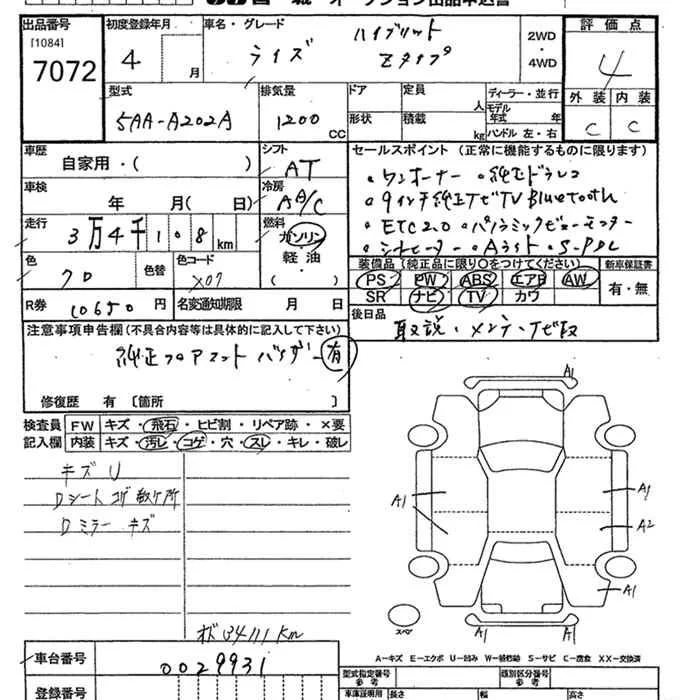 出品番号
[1084]
7072
初度登録年月
4 月
車名・グレード
ライズ
ハイブリット
Zタイプ
2WD
・
4WD
評価点
4
外装 内装
C C
型式
5AA-A202A
排気量
1200 CC
ドア
形状
定員 人
積載 kg
ディーラー・並行
モデル
年式 年
ハンドル 左・右
車歴
自家用・( )
シフト
AT
車検
年 月( 日)
冷房
AA/C
走行
3万4千108km
燃料
ガソリン
軽油
・
( )
色
クロ
色替
色コード
X07
R券 10650円
名変通知期限 月 日
セールスポイント (正常に機能するものに限ります)
・ワンオーナー ・純正ドラレコ
・9インチ純正ナビTV Bluetooth
・ETC2.0 ・パノラミックビューモニター
・シートヒーター ・Aライト ・S-PDL
装備品(純正品に限り○をつけてください)
PS PW ABS エアB AW
SR ナビ TV カワ
新車保証書
有・無
後日品
取説・メンテ・ナビ取
注意事項申告欄(不具合内容等は具体的に記入して下さい)
純正フロアマット バイザー有
修復歴 有〔箇所 〕
検査員
記入欄
FW キズ・飛石・ヒビ割・リペア跡・×要
内装 キズ・汚レ・コゲ・穴・スレ・キレ・破レ
キズU
Dシート コゲ数ヶ所
Dミラー キズ
A1
A1
A1
A2
A1
A1
A1
スペア
34111km
A−キズ E−エクボ U−凹み W−補修跡 S−サビ C−腐食 XX−交換済
車台番号
0029931
登録番号
型式指定番号
参考
類別区分番号
参考
車庫証明用
長さ
幅
高さ